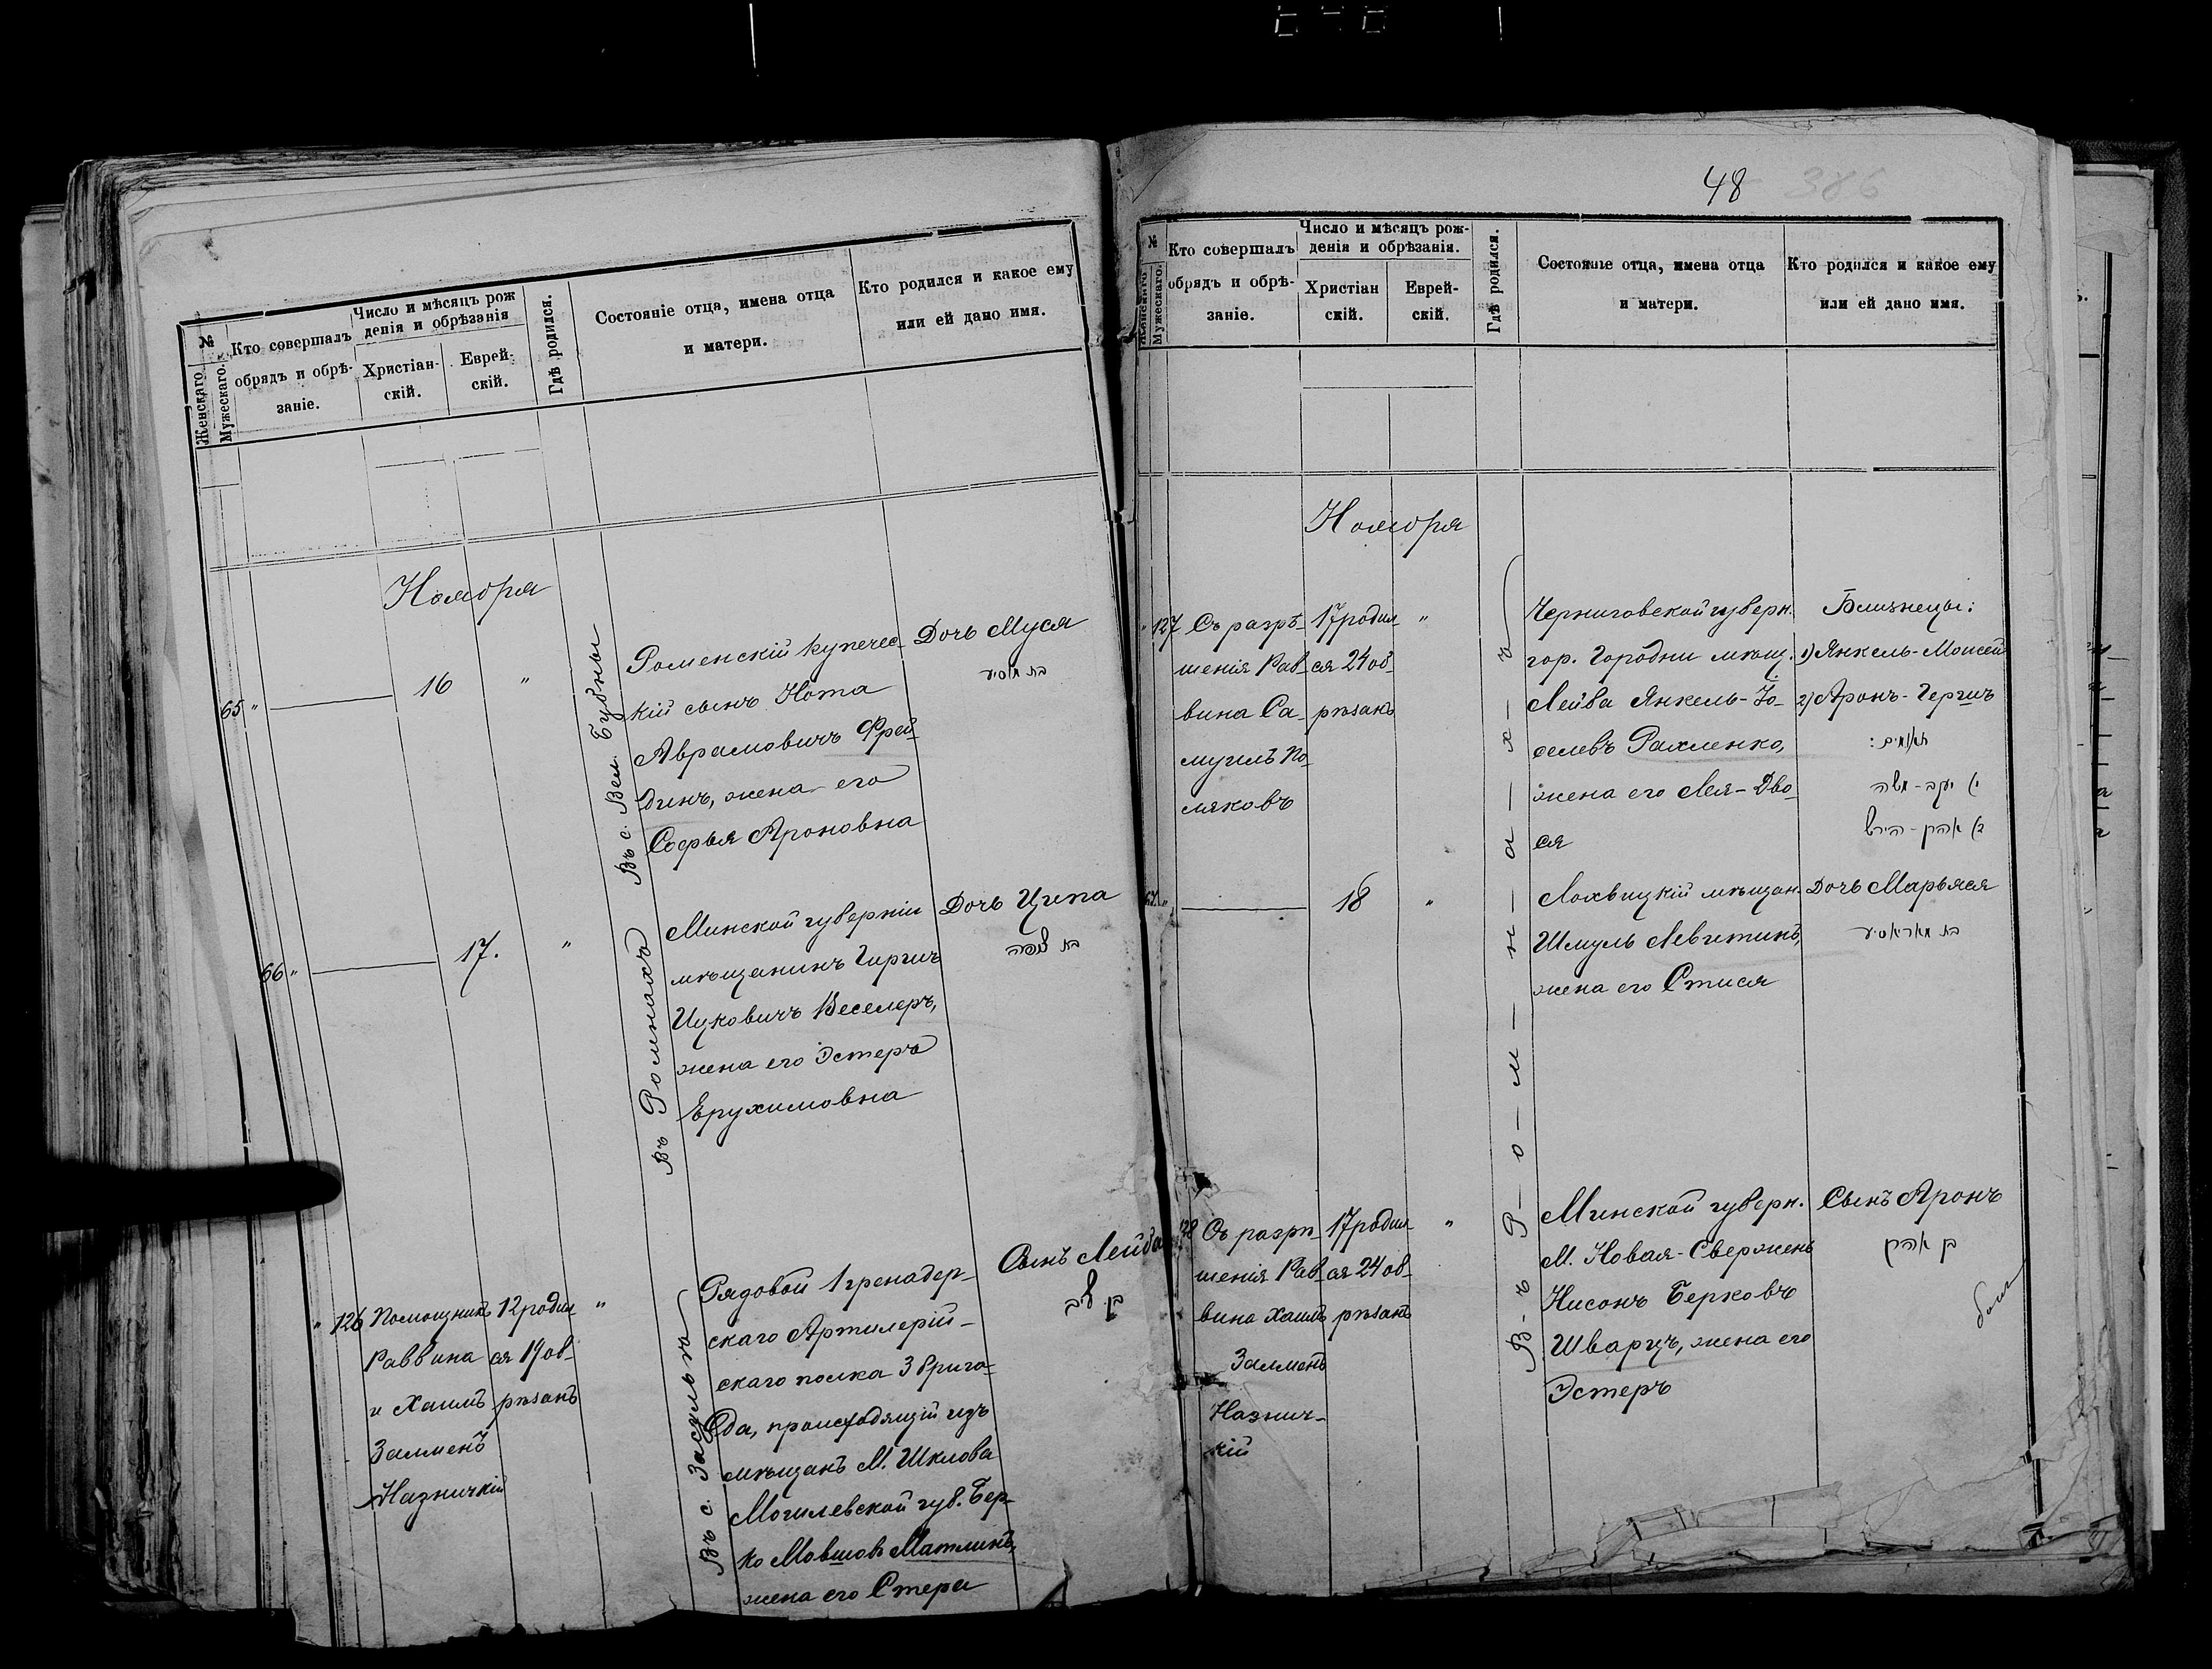 №
Женскаго
Мужескаго.
Кто совершалъ
обрядъ и обрѣ-
заніе.
Число и мѣсяцъ рож
денія и обрѣзанія
Христіан-
скій.
Еврей-
скій.
Гдѣ родился.
Состояніе отца, имена отца
и матери.
Кто родился и какое ему
или ей дано имя.
Ноября
65 "
16
"
Въ с. Вел. Бубны
Роменскій купечес-
кій сынъ Нота
Аврамовичъ Фрей-
динъ, жена его
Софья Ароновна
Дочь Муся
66 "
17.
"
Въ Роминахъ
Минской губерніи
мѣщанинъ Гиршъ
Ицковичъ Веселеръ,
жена его Эстеръ
Ерухимовна
Дочь Ципа
" 126
Помощникъ
Раввина
и Хаимъ
Залменъ
Назничкій
12 родил
ся 19 об-
рѣзанъ
"
Въ с.
Рядовой 1 гренадер-
скаго Артилерій-
скаго полка 3 брига-
да, происходящій изъ
мѣщанъ М. Шклова
Могилевской губ. Бер-
ко Мовшовъ Матлинъ,
жена его Стера
Сынъ Лейба
בן ליב
48
386
№
Женскаго
Мужескаго.
Кто совершалъ
обрядъ и обрѣ-
заніе.
Число и мѣсяцъ рож-
денія и обрѣзанія.
Христіан
скій.
Еврей-
скій.
Гдѣ родился.
Состояніе отца, имена отца
и матери.
Кто родился и какое ему
или ей дано имя.
Ноября
" 127
Съ разрѣ-
шенія Рав-
вина Са-
муилъ По-
ляковъ
17 родил-
ся 24 об-
рѣзанъ
"
В-ъ Р-о-м-н-а-х-ъ
Черниговской губерн.
гор. Городни мѣщ.
Лейба Янкель-Іо-
селевъ Рахленко,
жена его Лея-Дво-
ся
Близнецы:
1) Янкель-Моисей
2) Аронъ-Гершъ
תאומים:
1) יעקב - משה
2) אהרן - הירש
67. "
18
"
Лохвицкій мѣщан.
Шмуль Левитинъ,
жена его Стися
Дочь Марьяся
128
Съ разрѣ-
шенія Рав-
вина Хаимъ
Залменъ
Назнич-
кій
17 родил-
ся 24 об-
рѣзанъ
"
Минской губерн.
М. Новая-Свержень
Нисонъ Берковъ
Шварцъ, жена его
Эстеръ
Сынъ Аронъ
בן אהרן